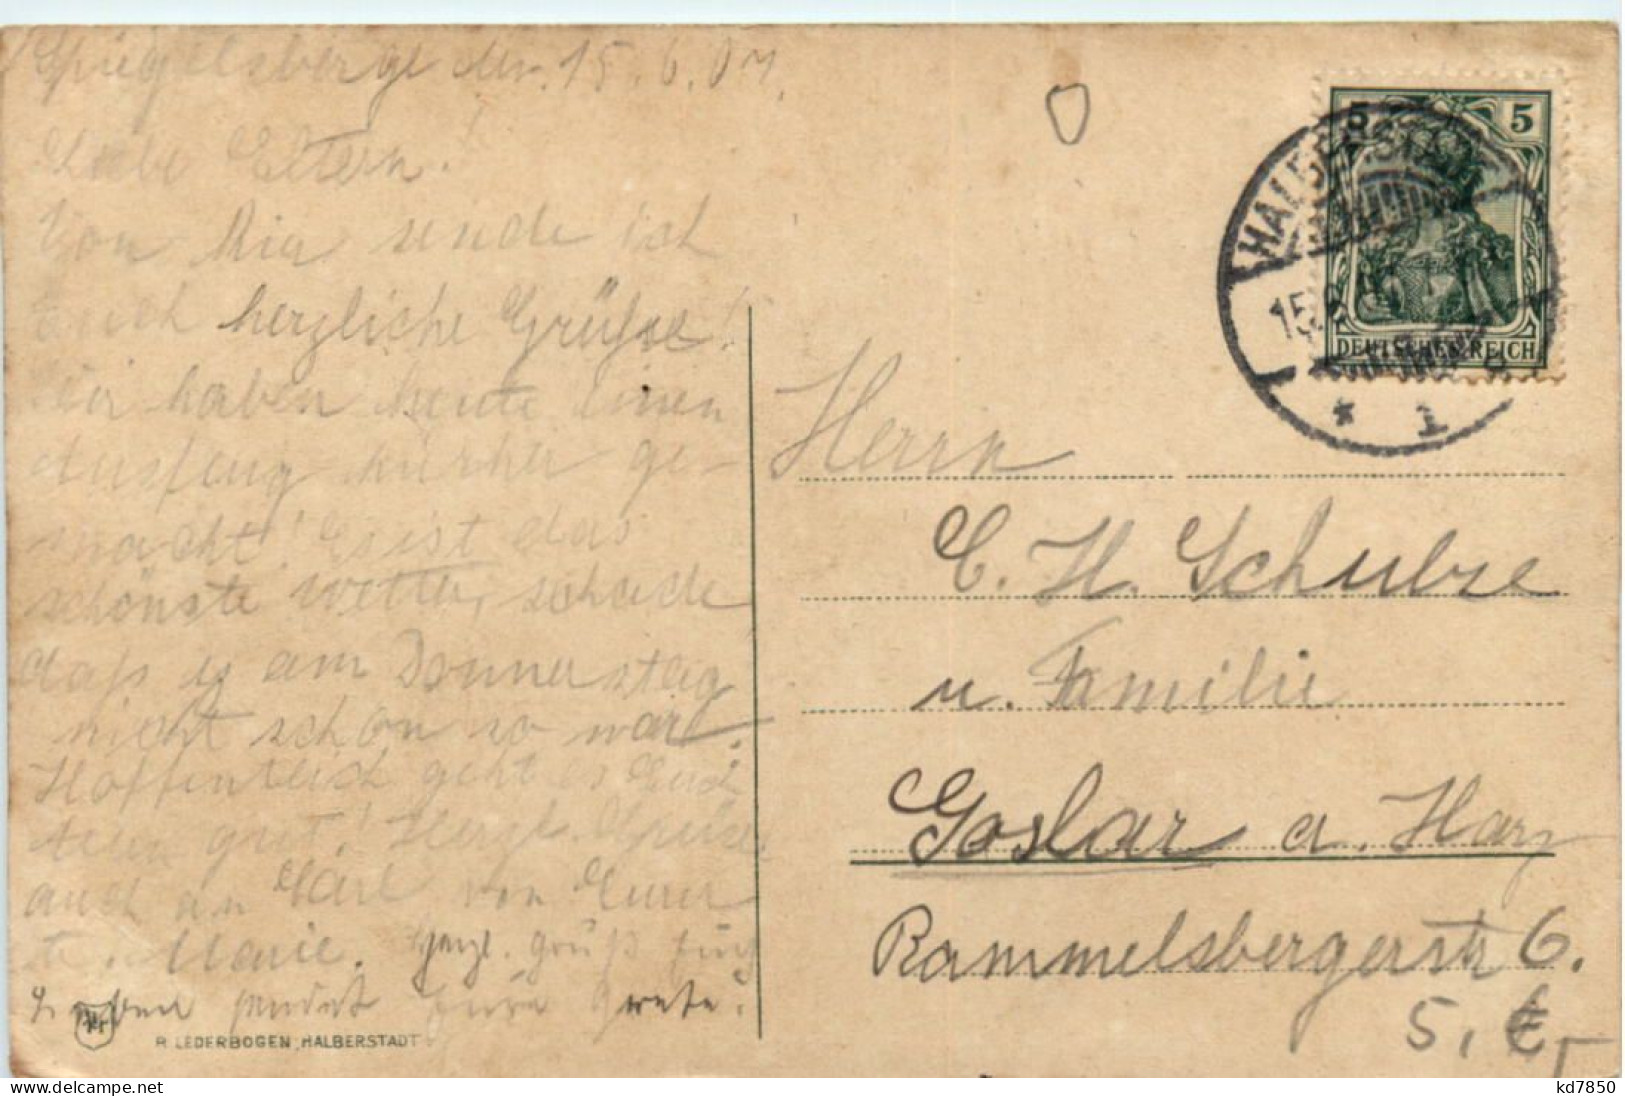 Spiegelsberge den 15.6.07.
Liebe Eltern!
Von hier sende ich
Euch herzliche Grüße!
Wir haben heute einen
Ausflug hierher ge-
macht! Es ist das
schönste Wetter, schade
daß es am Donnerstag
nicht schon so war.
Hoffentlich geht es Euch
allen gut! Herzl. Grüße
auch an Karl von Eurer
Marie. Herzl. Gruß
sendet Eure Grete.
R. LEDERBOGEN, HALBERSTADT
5 5
DEUTSCHES REICH
HALBERSTADT
15
* 1
Herrn
C. H. Schulze
u. Familie
Goslar a. Harz
Rammelsbergerstr 6.
5, €,-
delcampe.net
kd7850